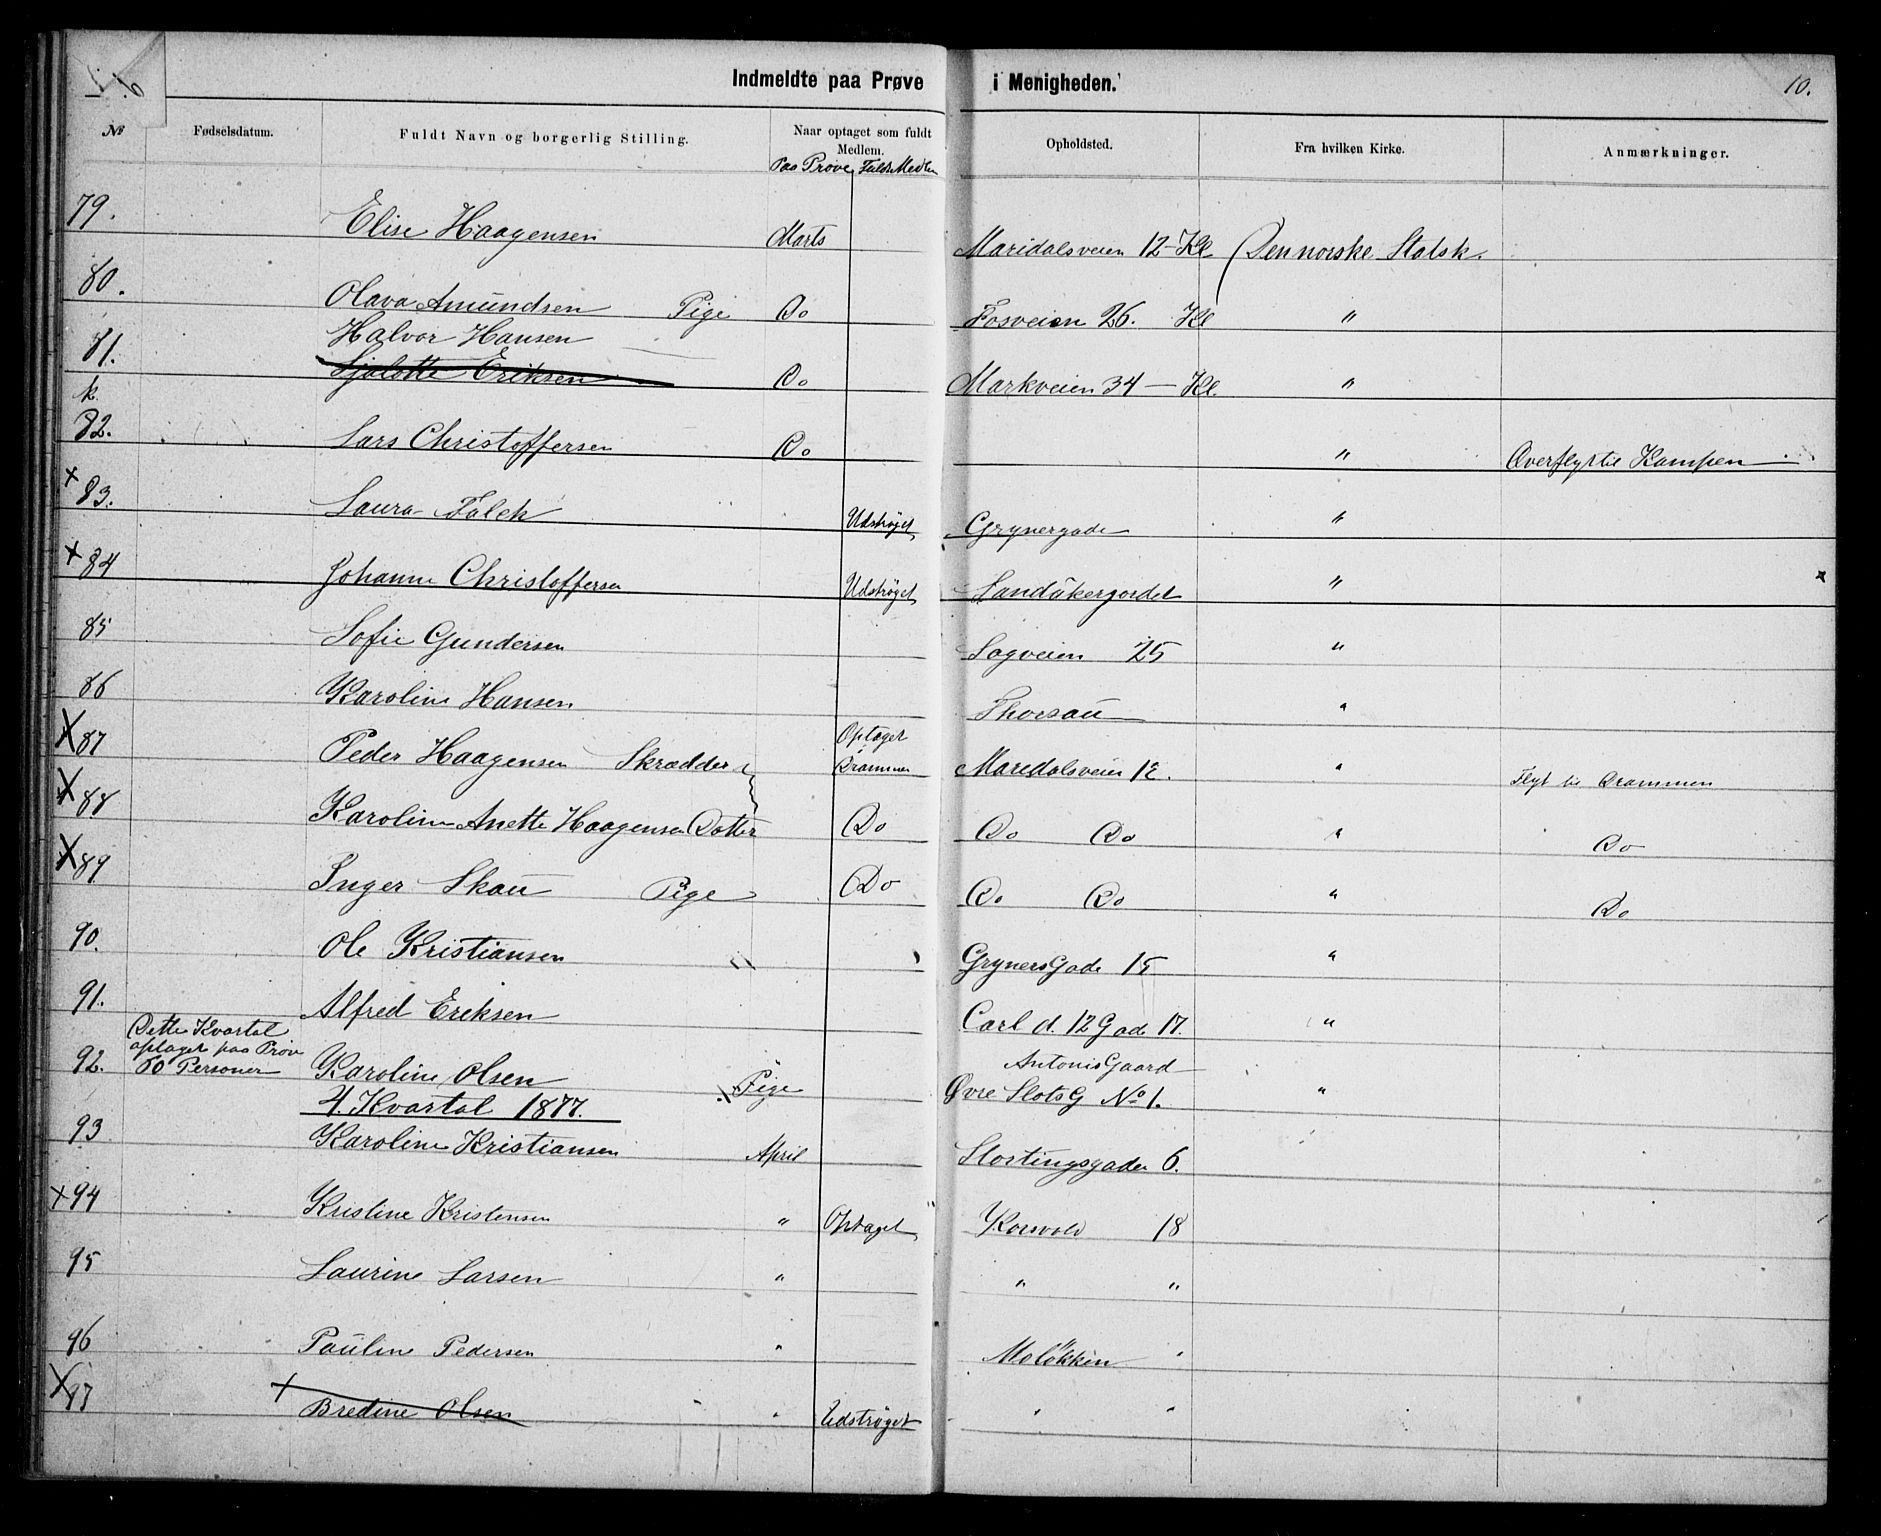 Indmeldte paa Prøve i Menigheden. 10.
№ Fødselsdatum. Fuldt Navn og borgerlig Stilling. Naar optaget som fuldt Medlem. Opholdsted. Fra hvilken Kirke. Anmærkninger.
Paa Prøve Fuldt Medlem
79. Elise Haagensen Marts Maridalsveien 12 - Kl Den norske Statsk.
80. Olava Amundsen Pige Do Fosveien 26. Kl "
Halvor Hansen
81. Sjalotte Eriksen Do Markveien 34 — Kl. "
k.
82. Lars Christoffersen Do " Overflyt til Kampen
x 83. Laura Falck Udstrøget Grynergade "
x 84 Johanne Christoffersen Udstrøget Sandåkergordet " x
85 Sofie Gundersen Sagveien 25 "
86 Karoline Hansen Thorsau "
X 87 Peder Haagensen Skrædder Optaget Drammen Maridalsveien 12. " Flyt til Drammen
X 88 Karoline Anette Haagensen Datter Do Do Do " Do
X 89 Inger Skau Pige Do Do Do " Do
90. Ole Kristiansen Gryners Gade 15 "
91. Alfred Eriksen Carl d. 12 Gade 17. "
Dette Kvartal
optaget paa Prøve
60 Personer
92. Karoline Olsen Pige Antonis Gaard
Øvre Slots G No 1. "
4. Kvartal 1877.
93 Karoline Kristiansen April Stortingsgaden 6.
x 94 Kristine Kristensen " Optaget Korsvold 18
95 Laurine Larsen " " "
96 Pauline Pedersen " Moløkken "
X 97 x Bredine Olsen " Udstrøget " "